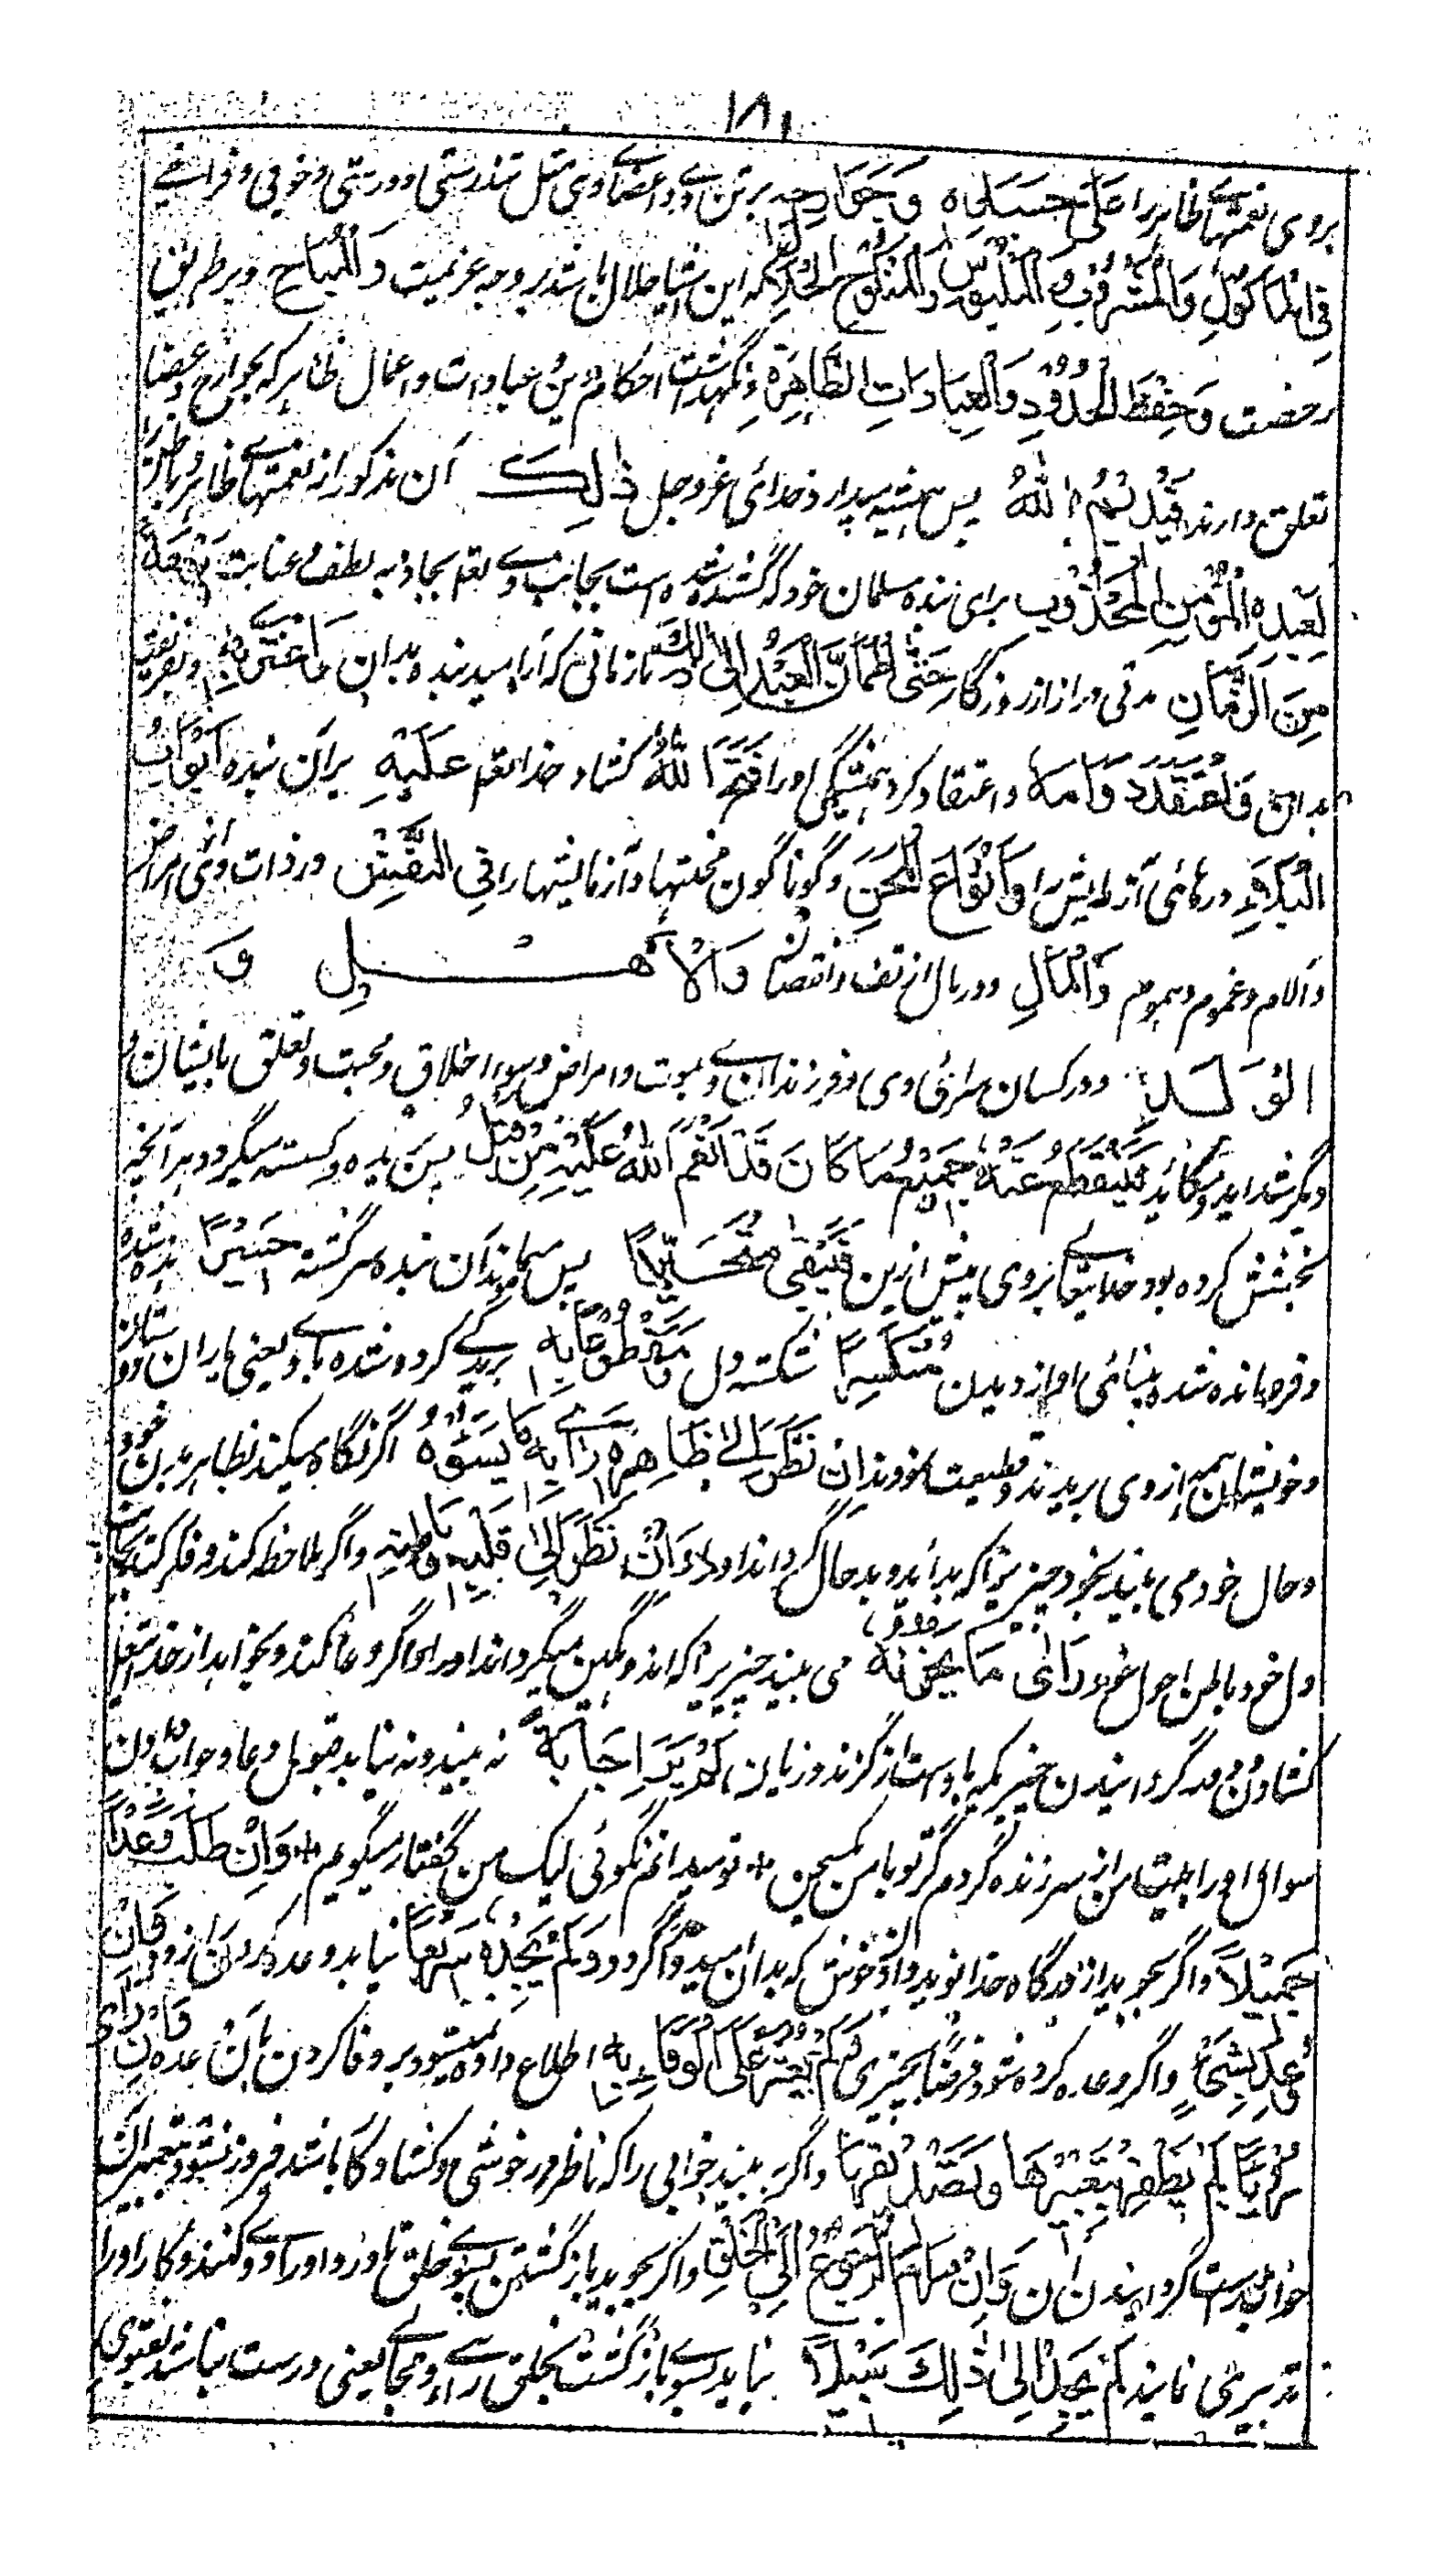 ۱۸۱
بروی نعمتهای ظاهر را عَلَى جَسَدِهِ وَجَوَارِحِهِ برتن وے و اعضاے وی مثل تندرستی و درستی و خوبی و فراخے
فِي الْمَأْكُوْلِ وَالْمَشْرُوْبِ وَ الْمَلْبُوْسِ وَالْمَنْكُوْحِ الْحَلَالِ که این اشیا حلال باشند بر وجه عزیمت وَ الْمُبَاحِ و بر طریق
رخصت وَحِفْظَ الْحُدُوْدِ وَالْعِبَادَاتِ الظَّاهِرَةِ و نگهداشت احکام دین و عبادات و اعمال ظاهر که بجوارح و اعضا
تعلق دارند فَيُدِيْمُ اللهُ پس همیشه میدارد خدائی عز و جل ذٰلِكَ آن مذکور از نعمتهاے ظاهر و باطن را
لِعَبْدِهِ الْمُؤْمِنِ الْمَجْذُوْبِ برای بنده مسلمان خود که کشیده شده است بجانب وے تعم بجاذبه لطف و عنایت
مِنَ الزَّمَانِ مدتی دراز از روزگار حَتّٰى اطْمَاَنَّ الْعَبْدُ اِلٰى ذٰلِكَ تا زمانی که آرامید بنده بدان
بدان وَاعْتَقَدَ دَوَامَهُ و اعتقاد کرد همیشگی او را فَتَحَ اللهُ کشاد خدا تعم عَلَيْهِ بر آن بنده اَبْوَابَ
الْبَلَاءِ درهائی آزمایش را وَاَنْوَاعَ الْمِحَنِ و گوناگون محنتها و آزمایشها را فِي النَّفْسِ در ذات وی امراض
و آلام و غموم و هموم وَالْمَالِ و در مال از تلف و نقصان وَالْاَهْلِ وَ
الْوَلَدِ و در کسان سرائی وی و فرزندان وے و بموت و امراض و سوء اخلاق و محبت و تعلق بایشان و
دیگر شداید و مکائد فَيَنْقَطِعُ عَنْهُ جَمِيْعُ مَا كَانَ قَدْ اَنْعَمَ اللهُ عَلَيْهِ مِنْ قَبْلُ پس بریده و گسسته میگردد هر آنچه
بخشش کرده بود خدا تعالے بروی پیش ازین فَيَبْقٰى مُتَحَيِّرًا پس میماند آن بنده سرگشته حَسِيْرًا
و فرو مانده شده بینائی او از دیدن مُنْكَسِرًا شکسته دل مَقْطُوْعًا بِهِ بریدگے کرده شده باوے یعنی یاران و دوستان
و خویشان همه از وی بریدند و قطیعت نمودند اِنْ نَظَرَ اِلٰى ظَاهِرِهٖ رَاٰى بِهِ مَا يَسُوْءُهُ اگر نگاه میکند بظاهر بدن خود
و حال خود می بیند بخود چیزیرا که بد آید و بد حال گرداند او را وَاِنْ نَظَرَ اِلٰى قَلْبِهِ وَبَاطِنِهِ و اگر ملاحظه کند و فکر کند بجانب
دل خود و باطن احوال خود رَاٰى مَا يَحْزُنُهُ می بیند چیزیرا که اندوهگین میگرداند او را و اگر دعا کند و بخواهد از خدا تعالے
کشادن و دور گردانیدن چیزیکه باوست از گزند و زیان لَمْ يَرَ اِجَابَةً نه بیند و نه یابد قبول دعا و جواب دادن
سوال او را بیت من از سر زنده گردم گر تو با من یک سخن + تو میدانم نگوئی لیک من گفتار میگویم + وَاِنْ طَلَبَ وَعْدًا
جَمِيْلًا و اگر بجوید از درگاه خدا نوید و وعده خوش که بدان امیدوار گردد لَمْ يَجِدْهُ سَرِيْعًا نیابد وعده کردن را زود وَاِنْ
وُعِدَ بِشَيْءٍ و اگر وعده کرده شود فرضا بچیزی لَمْ يَعْثُرْ عَلَى الْوَفَاءِ بِهِ اطلاع داده نمیشود بر وفا کردن بآن وعده وَاِنْ رَاٰى
رُؤْيَا لَمْ يَظْفَرْ بِتَعْبِيْرِهَا وَتَصْدِيْقِهَا و اگر به بیند خوابی را که ناظر در خوشی و کشاد کار باشد فیروز نشود بتعبیر آن
خواب و راست گردانیدن آن وَاِنْ رَامَ الرُّجُوْعَ اِلَى الْخَلْقِ و اگر بجوید بازگشتن بسوے خلق
تدبیری نمایند لَمْ يَجِدْ اِلٰى ذٰلِكَ سَبِيْلًا نیابد بسوے بازگشت بخلق راہے و مجالے یعنی درست نباشد